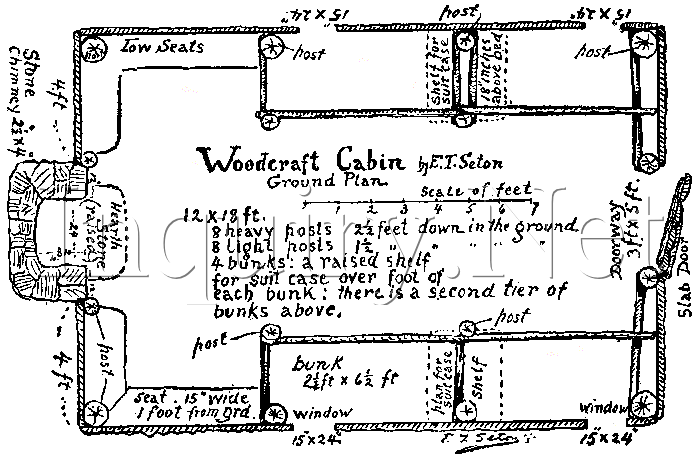 15 x 24"
post
15 x 24"
Low Seats
post
shelf for
suit case
18 inches
above bed
post
Stone
Chimney 2½ x 4'
4 ft
Woodcraft Cabin by E.T. Seton
Ground Plan.
scale of feet
1 2 3 4 5 6 7
Hearth
Stone
(raised)
12 x 18 ft.
8 heavy posts 2½ feet down in the ground
8 light posts 1½ " " " " "
4 bunks: a raised shelf
for suit case over foot of
each bunk: there is a second tier of
bunks above.
Doorway
3 ft x 5 ft.
Slab Door
Inquiry.Net
post
post
post
4 ft
bunk
2½ ft x 6½ ft
plan for
suitcase
shelf
seat. 15" wide
1 foot from grd.
window
window
15" x 24"
E. T. Seton
15" x 24"